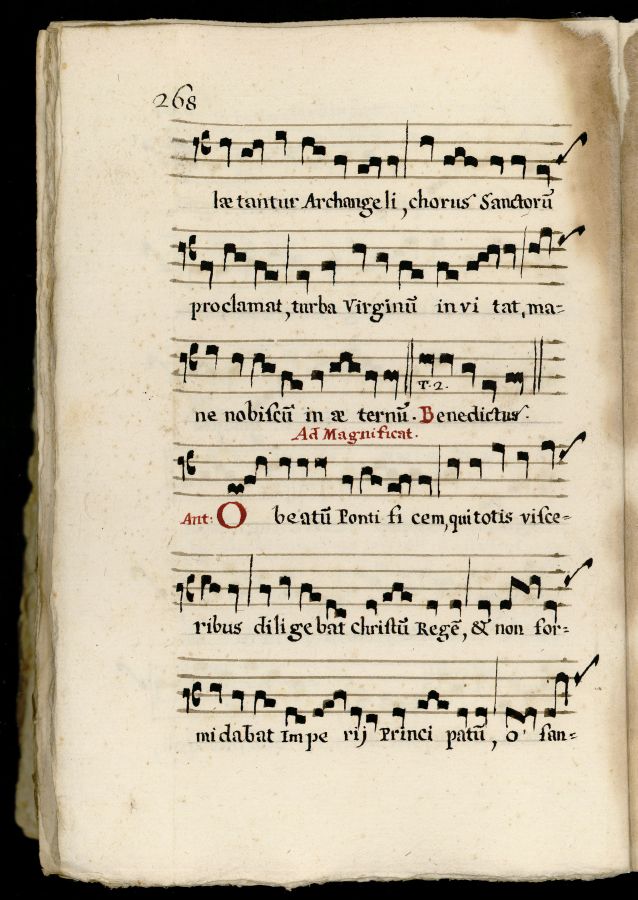 268
lætantur Archangeli, chorus Sanctorũ
proclamat, turba Virginũ invitat, ma=
T. 2.
ne nobiſcũ in æternũ. Benedictus.
Ad Magnificat.
Ant: O beatũ Pontificem, qui totis viſce=
ribus diligebat Chriſtũ Regẽ, & non for=
midabat Imperij Principatũ, O ſan=